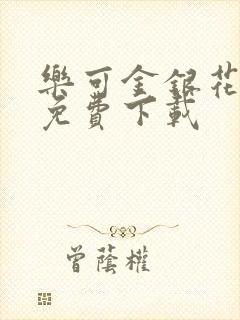 樂可金銀花
免費下載
曾蔭權